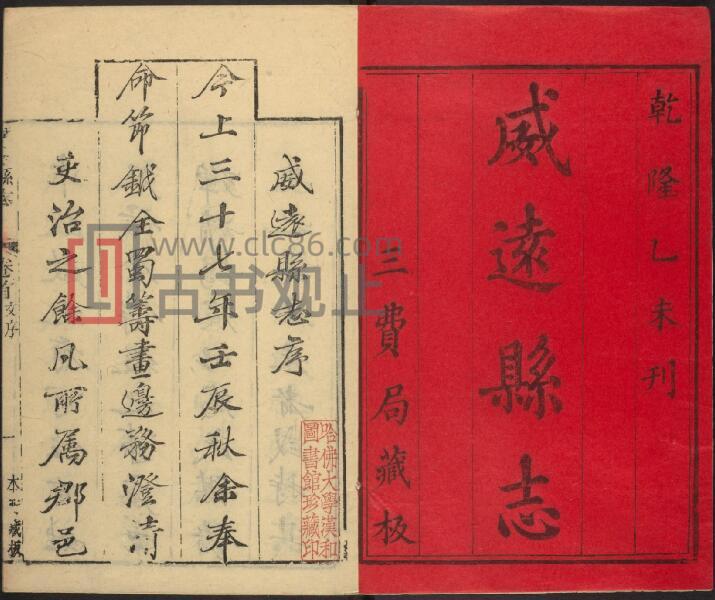 乾隆乙未刊
威遠縣志
三費局藏板
威遠縣志序
今上三十七年壬辰秋余奉
命節鉞全蜀籌畫邊務澄清
吏治之餘凡所属郡邑
卷首
序
一
藏板
哈佛大學漢和
圖書館珍藏印
www.clc86.com
古书观止